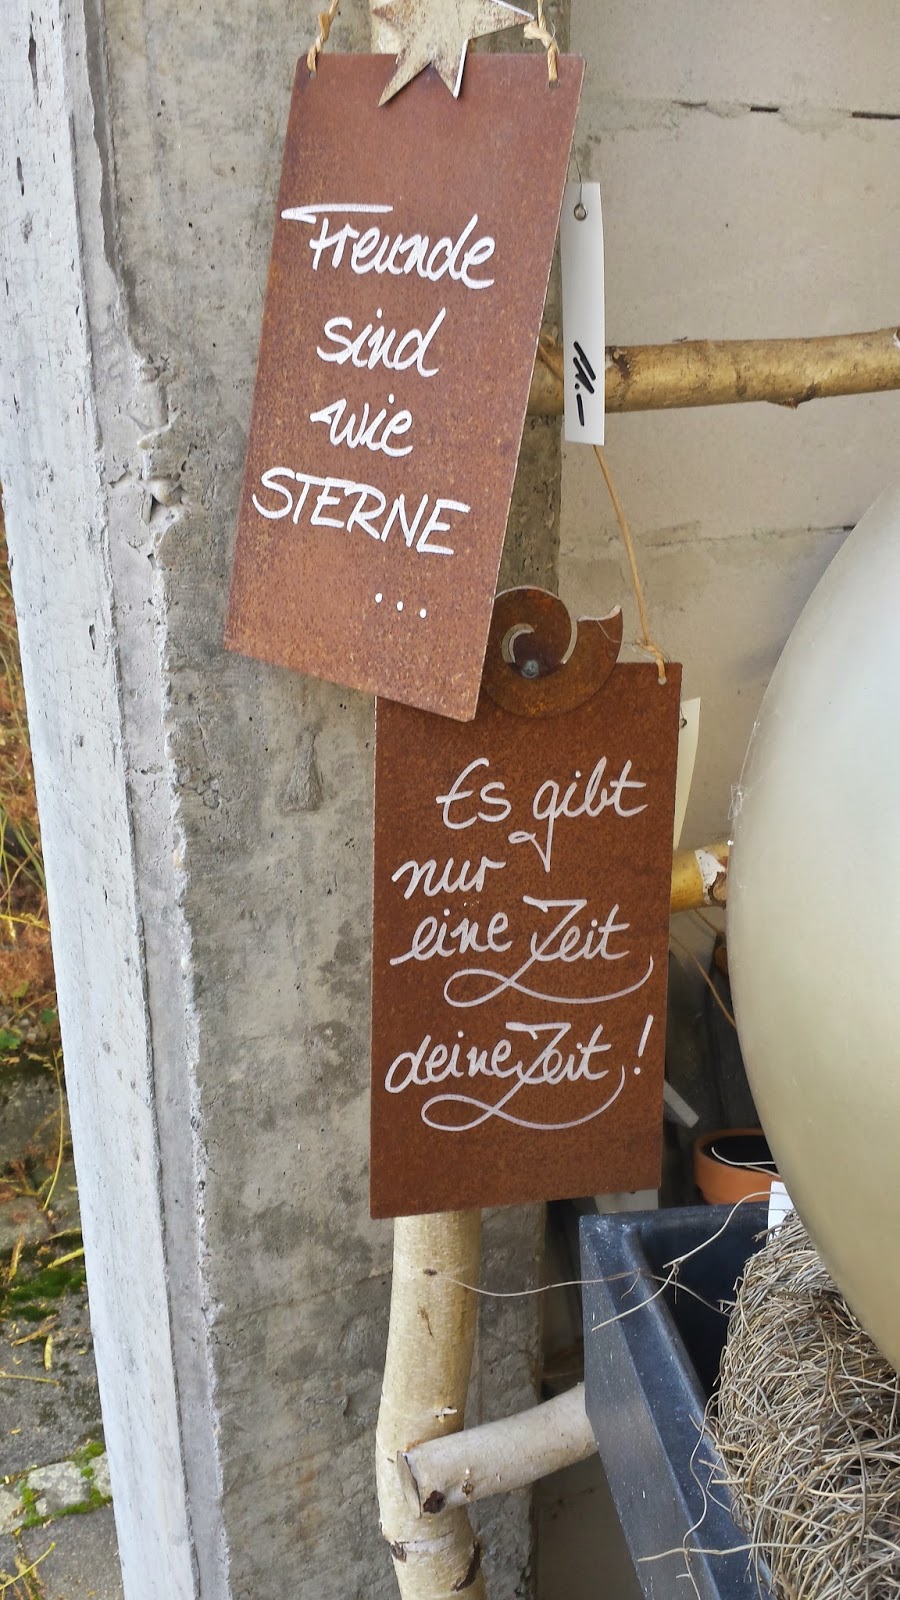 Freunde
sind
wie
STERNE
...
11.–
Es gibt
nur
eine Zeit
deine Zeit!